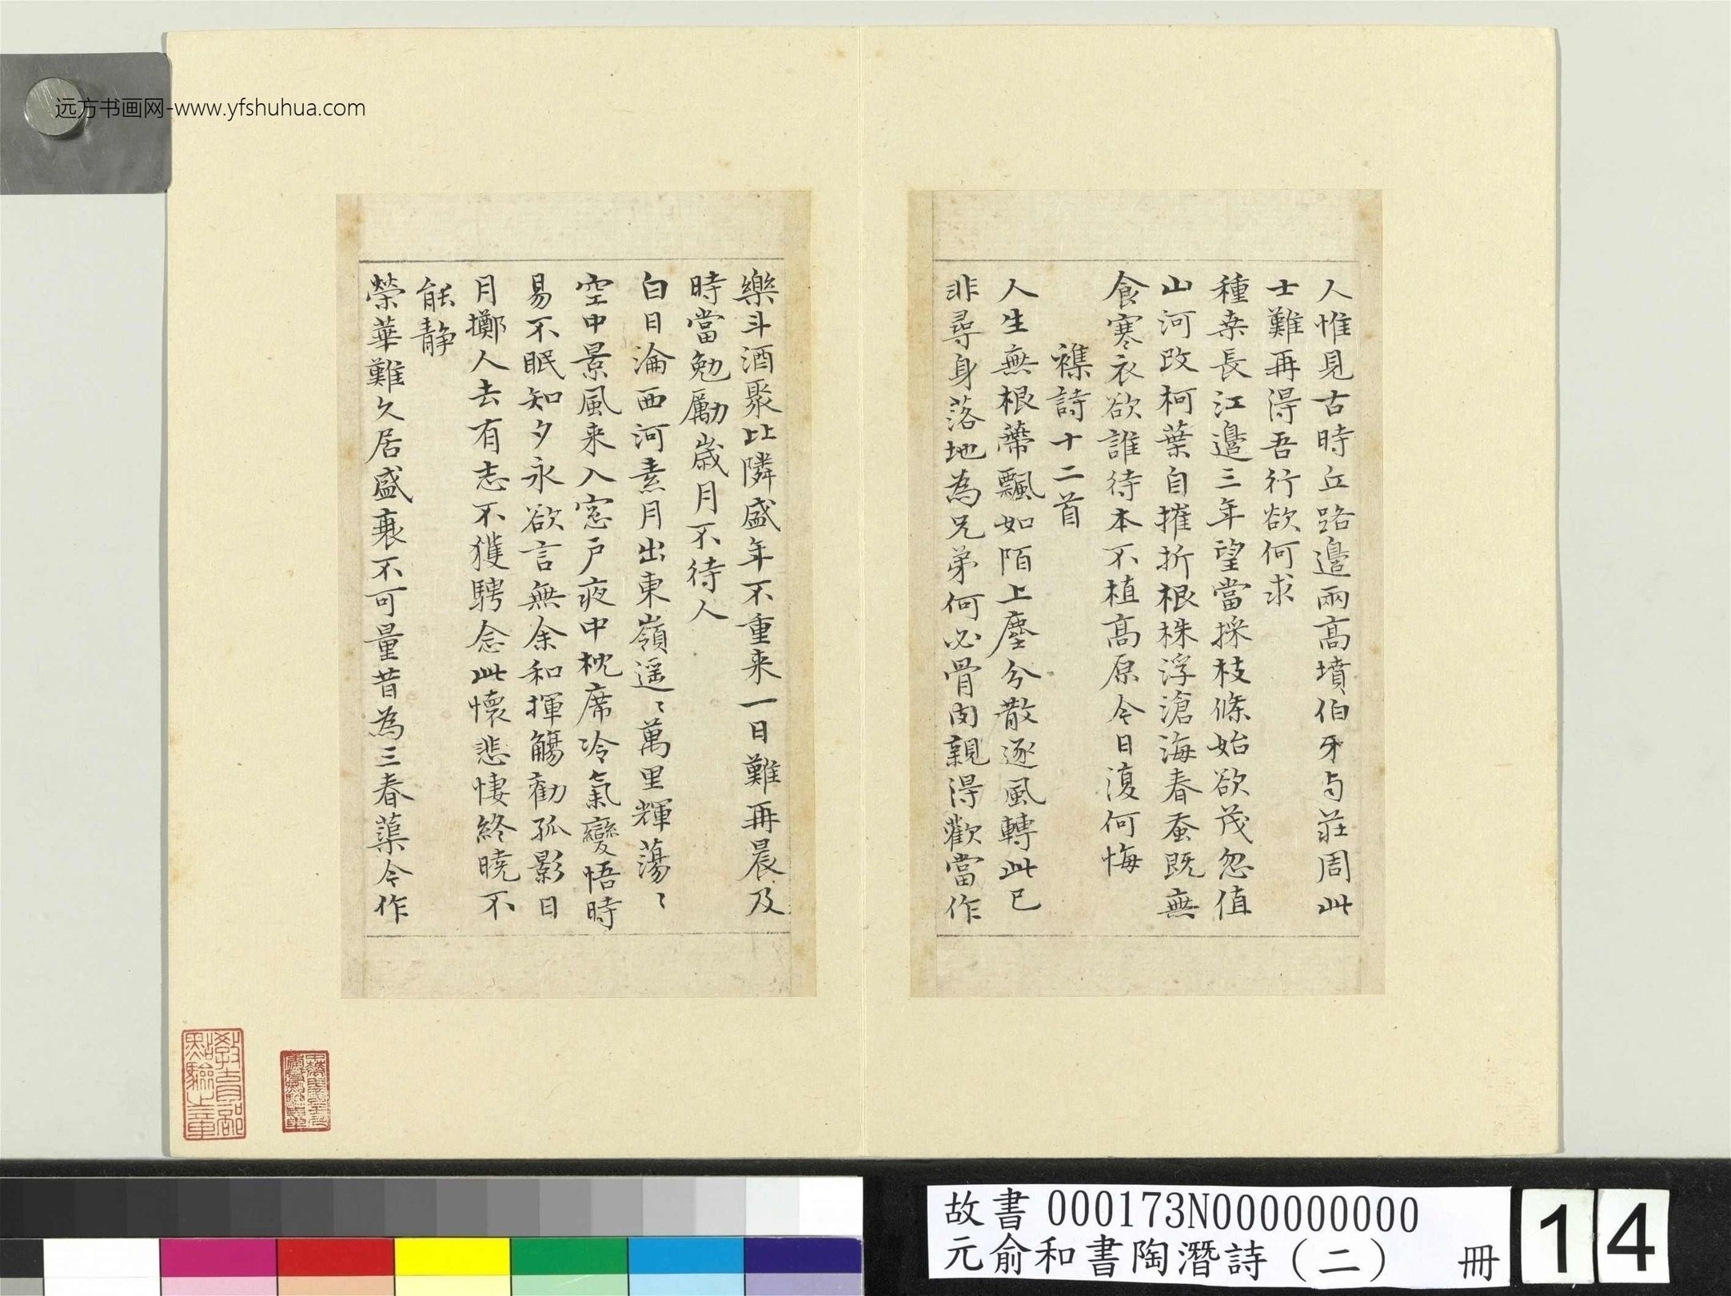 远方书画网-www.yfshuhua.com
人惟見古時丘路邉兩髙墳伯牙与莊周此
士難再得吾行欲何求
種桒長江邉三年望當採枝條始欲茂忽值
山河改柯葉自摧折根株浮滄海春蚕既無
食寒衣欲誰待本不植髙原今日復何悔
襍詩十二首
人生無根蔕飄如陌上塵分散逐風轉此已
非尋身落地為兄弟何必骨肉親得歡當作
樂斗酒聚比隣盛年不重来一日難再晨及
時當勉勵歲月不待人
白日淪西河素月出東嶺遥〻萬里輝蕩〻
空中景風来入窓戶夜中枕席冷氣變悟時
易不眠知夕永欲言無余和揮觴勸孤影日
月擲人去有志不獲騁念此懷悲悽終曉不
能静
榮華難久居盛衰不可量昔為三春蕖今作
教育部
點驗之章
故書 000173N000000000
元俞和書陶潛詩（二） 冊
14